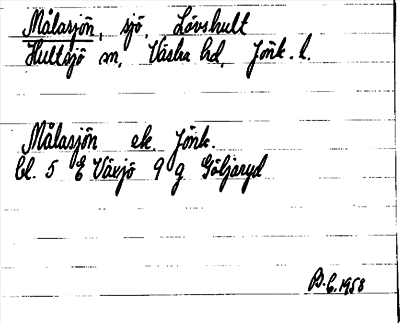 Målasjön, sjö, Lövshult
Hultsjö sn, Västra hd, Jönk. l.
Målasjön ek. Jönk.
bl. 5 E Växjö 9 g Göljaryd
B.G. 1958